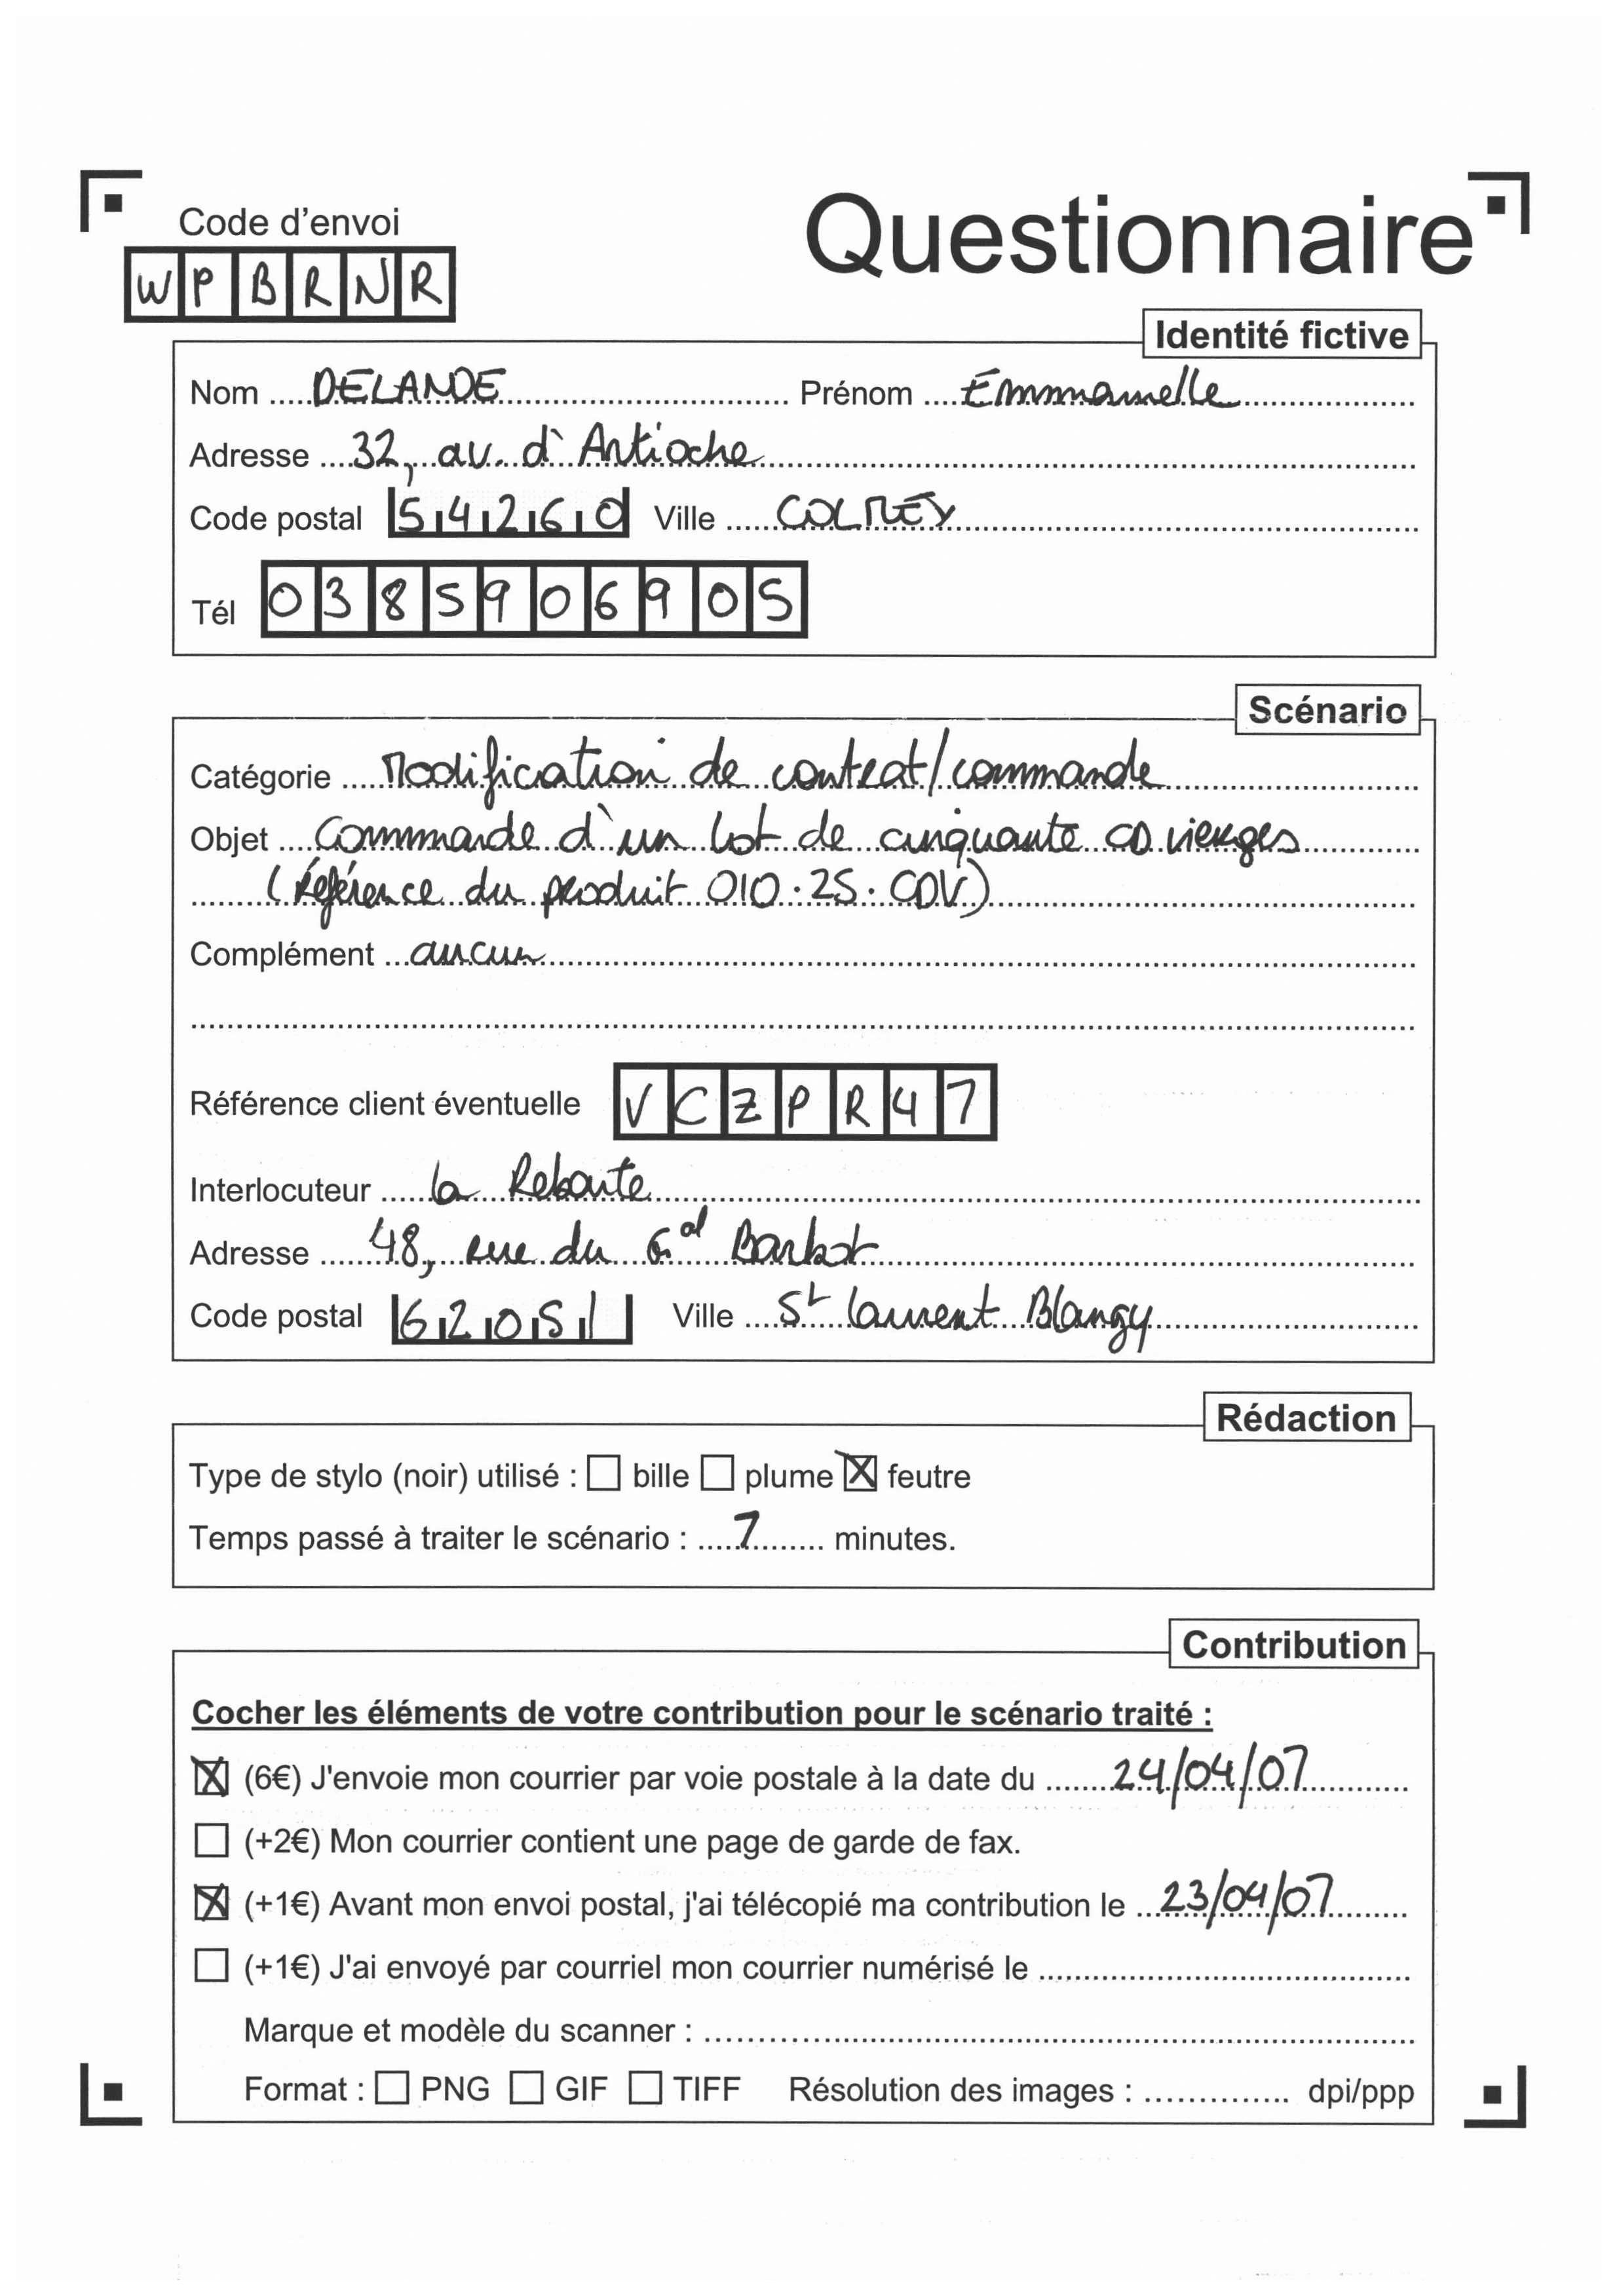 Code d'envoi
WPBRNR
Questionnaire
Identité fictive
Nom DELANDE Prénom Emmanuelle
Adresse 32, av. d'Antioche
Code postal 54260 Ville COLMEY
Tél 0385906905
Scénario
Catégorie Modification de contrat/commande
Objet Commande d'un lot de cinquante CD vierges
(référence du produit 010.25.CDV)
Complément aucun
Référence client éventuelle VCZPR47
Interlocuteur la Reboute
Adresse 48, rue du Gal Barbot
Code postal 62051 Ville St Laurent Blangy
Rédaction
Type de stylo (noir) utilisé : bille plume feutre
Temps passé à traiter le scénario : 7 minutes.
Contribution
Cocher les éléments de votre contribution pour le scénario traité :
(6€) J'envoie mon courrier par voie postale à la date du 24/04/07
(+2€) Mon courrier contient une page de garde de fax.
(+1€) Avant mon envoi postal, j'ai télécopié ma contribution le 23/04/07
(+1€) J'ai envoyé par courriel mon courrier numérisé le
Marque et modèle du scanner :
Format : PNG GIF TIFF Résolution des images : dpi/ppp